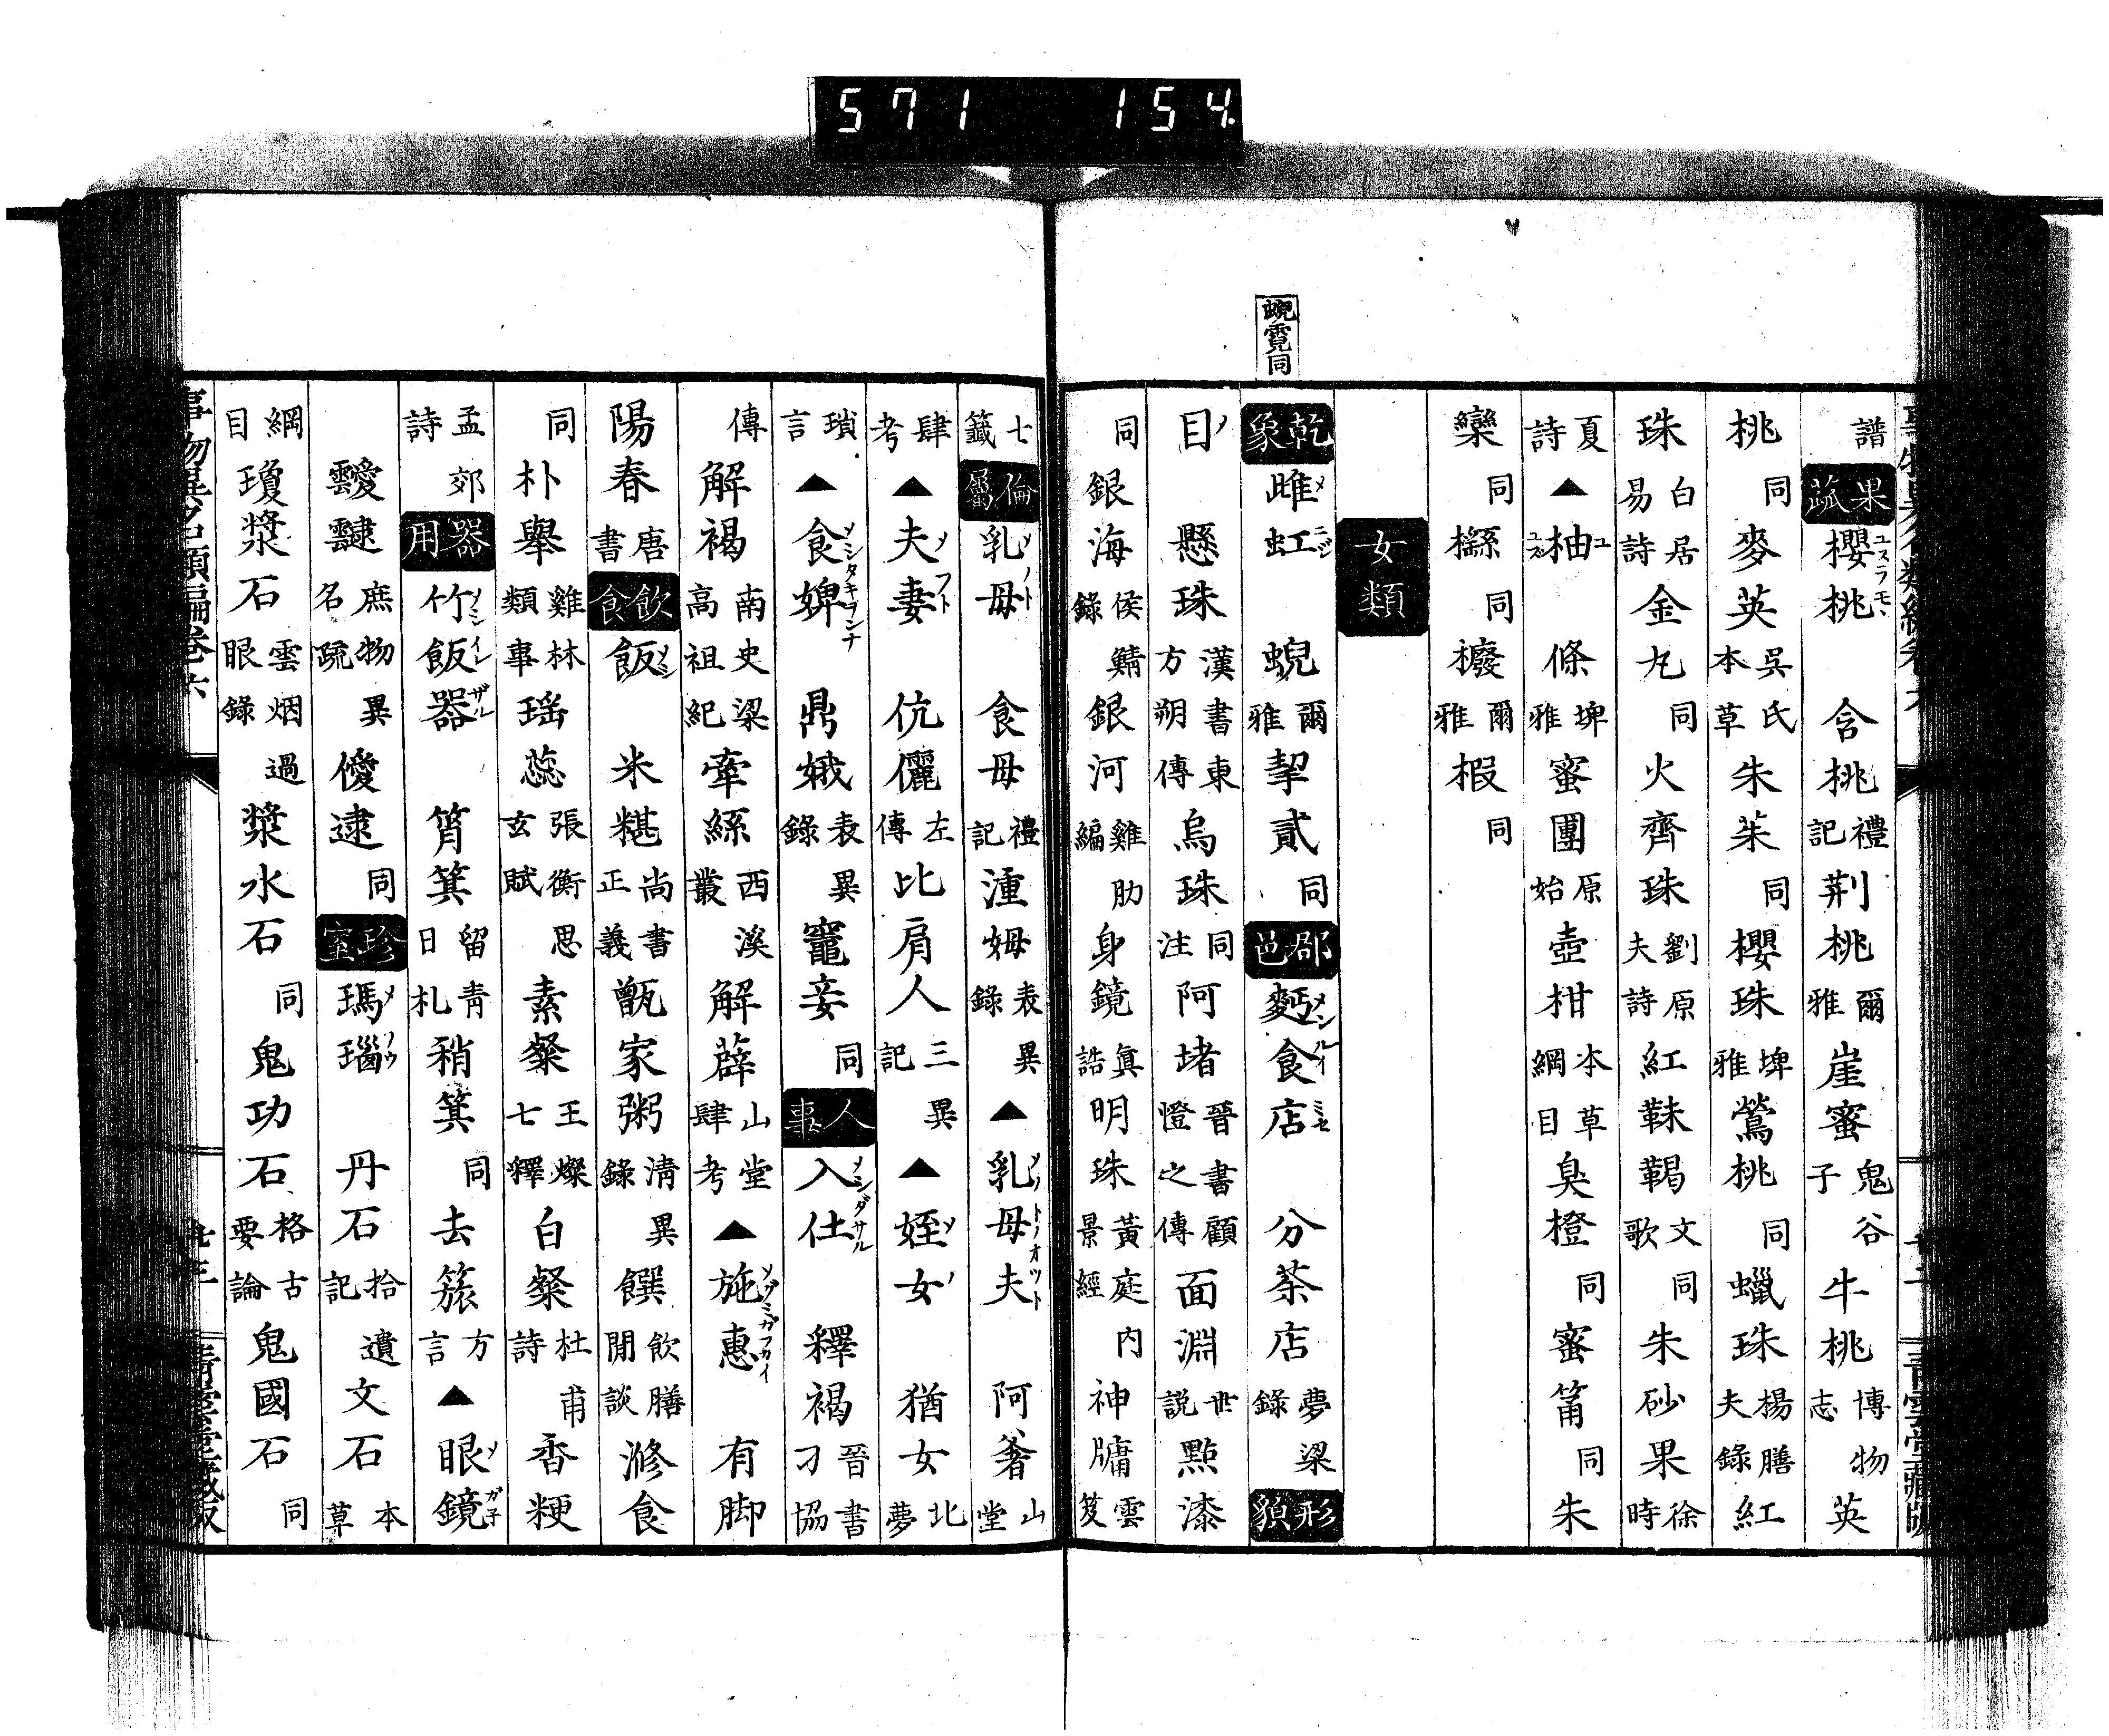 571 154.
蜺霓同
譜 果蓏 櫻桃 ユスラモヽ 含桃 禮記 荆桃 爾雅 崖蜜 鬼谷子 牛桃 博物志 英
桃 同 麥英 呉氏本草 朱茱 同 櫻珠 埤雅 鶯桃 同 蠟珠 楊夫膳録 紅
珠 白居易詩 金丸 同 火齊珠 劉原夫詩 紅靺鞨 文歌 同 朱砂果 徐時
夏詩 ▲柚 ユ ユズ 條 埤雅 蜜團 原始 壺柑 本草綱目 臭橙 同 蜜筩 同 朱
欒 同 櫾 同 櫠 爾雅 椵 同
女類
乾象 雌虹 メニジ 蜺 爾雅 挈貳 同 郡邑 麪食店 メンルイミセ 分茶店 夢粱録 形貌
目 懸珠 漢書東方朔傳 烏珠 同注 阿堵 晉書顧愷之傳 面淵 世説 點漆
同 銀海 侯鯖録 銀河 雞肋編 身鏡 眞誥 明珠 黄庭内景經 神牖 雲笈
七籤 倫屬 乳母 メノト 食母 禮記 湩姆 表異録 ▲乳母夫 メノトノオツト 阿奢 山堂
肆考 ▲夫妻 メフト 伉儷 左傳 比肩人 三異記 ▲姪女 猶女 北夢
瑣言 ▲食婢 メシタキヲンナ 鼎娥 表異録 竈妾 同 人事 入仕 メシダサル 釋褐 晉書刁協
傳 解褐 南史梁高祖紀 牽絲 西溪叢 解薜 山堂肆考 ▲施惠 有脚
陽春 唐書 飲食 飯 メシ 米糂 尚書正義 甑家粥 清異録 饌 飲膳閒談 滫食
同 朴舉 雞林類事 瑶蕊 張衡思玄賦 素粲 王燦七釋 白粲 杜甫詩 香粳
孟郊詩 器用 竹飯器 メシイレザル 筲箕 留青日札 稍箕 同 去䈰 方言 ▲眼鏡 メガ子
靉靆 庶物異名疏 僾逮 同 珍室 瑪瑙 メノウ 丹石 拾遺記 文石 本草
綱目 瓊漿石 雲烟過眼録 漿水石 同 鬼功石 格古要論 鬼國石 同